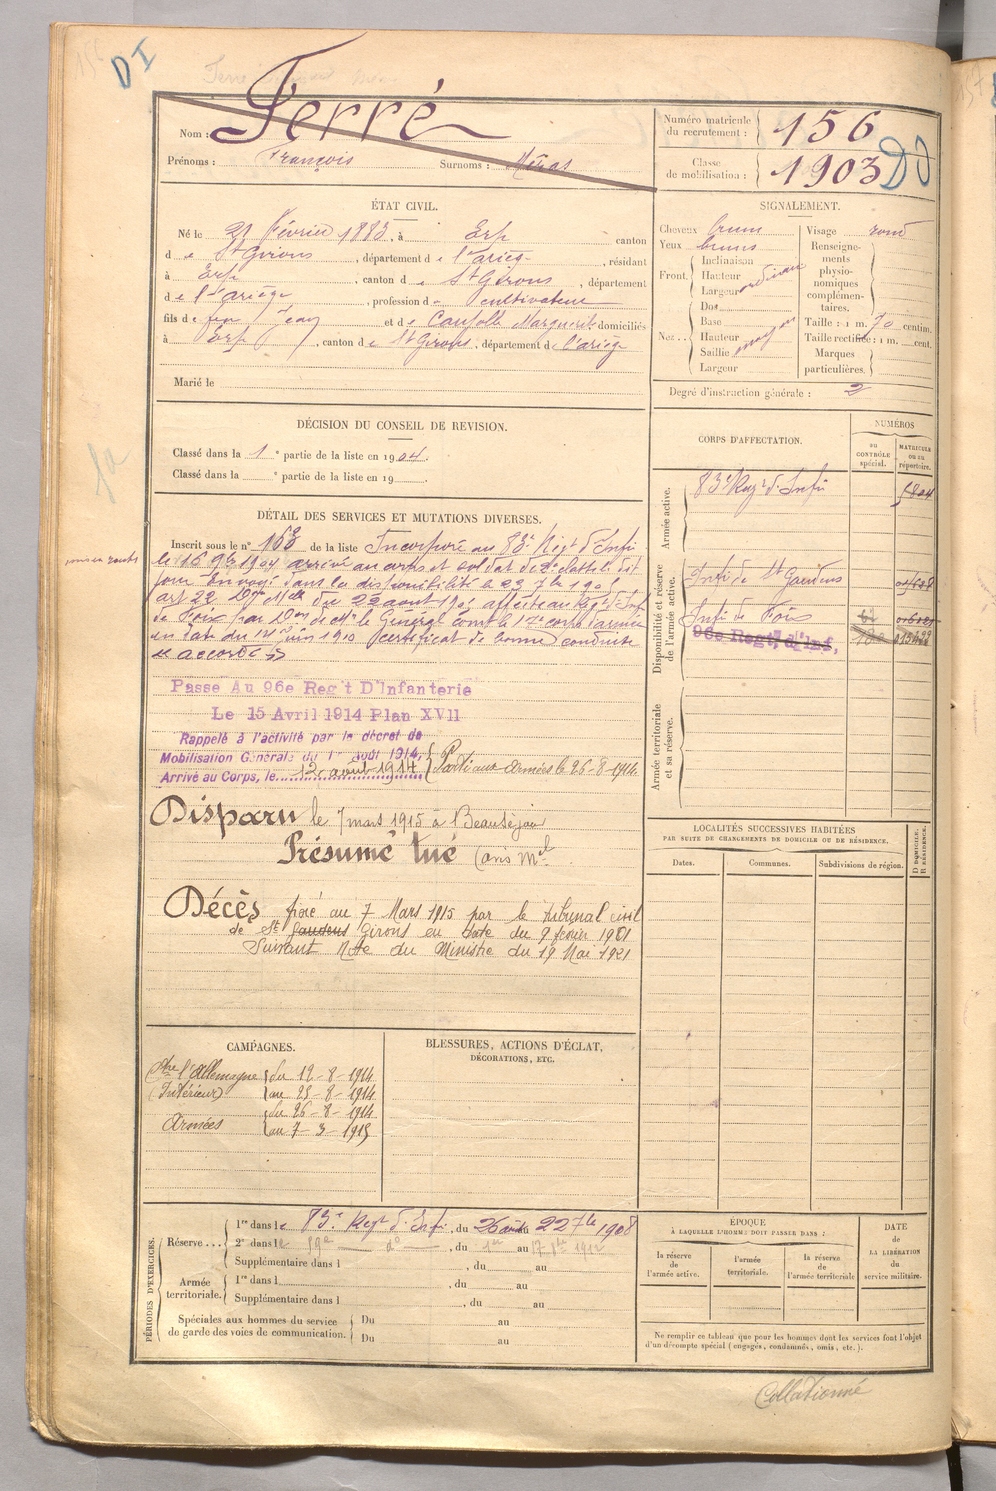 DI
Nom : Ferré
Prénoms : François Surnoms : Méras
Numéro matricule du recrutement : 156
Classe de mobilisation : 1903
ÉTAT CIVIL.
Né le 21 Février 1883, à Erp canton
d e St Girons, département d e l'ariège, résidant
à Erp, canton d e St Girons, département
d e l'ariège, profession d cultivateur
fils d e feu Jean et d e Caujolle Marguerite domiciliés
à Erp, canton d e St Girons, département d e l'ariège
Marié le
SIGNALEMENT.
Cheveux bruns
Yeux bruns
Front. Inclinaison
Hauteur
Largeur ordinaire
Nez... Dos
Base
Hauteur
Saillie moyen
Largeur
Visage rond
Renseignements physionomiques complémentaires.
Taille : 1 m. 70 centim.
Taille rectifiée : 1 m. cent.
Marques particulières.
Degré d'instruction générale : 2
DÉCISION DU CONSEIL DE REVISION.
Classé dans la 1e partie de la liste en 1904.
Classé dans la e partie de la liste en 19
CORPS D'AFFECTATION.
NUMÉROS
au CONTRÔLE spécial.
MATRICULE ou au répertoire.
Armée active.
83e Regt d'Infie
Disponibilité et réserve de l'armée active.
Infie de St Gaudens
Infie de Foix
96e Reg't d'Inf,
Armée territoriale et sa réserve.
DÉTAIL DES SERVICES ET MUTATIONS DIVERSES.
mis en route
Inscrit sous le n° 168 de la liste Incorporé au 83e Regt d'Infie
le 15 9bre 1904 arrivé au corps et soldat de 2e classe le dit
jour Envoyé dans la disponibilité le
art 22 du 22 août affecté au Régt d'Infie
de Foix par Don de Mr le Général Comt le 17e corps d'armée
en date du 12 juin 1910 certificat de bonne conduite
accordé
Passe Au 96e Reg't D'Infanterie
Le 15 Avril 1914 Plan XVII
Rappelé à l'activité par le décret de
Mobilisation Générale du 1er août 1914,
Arrivé au Corps, le 12 août 1914 Parti aux Armées le 26-8-1914
Disparu le 7 mars 1915 à Beauséjour
Présumé tué (avis Mel
Décès fixé au 7 Mars 1915 par le tribunal civil
de St Gaudens Girons en date du 9 février 1921
Suivant Note du Ministre du 19 Mai 1921
LOCALITÉS SUCCESSIVES HABITÉES
PAR SUITE DE CHANGEMENTS DE DOMICILE OU DE RÉSIDENCE.
Dates. Communes. Subdivisions de région. D DOMICILE. R RÉSIDENCE.
CAMPAGNES.
Ctre l'Allemagne du 12-8-1914
(Intérieur) au 25-8-1914
du 26-8-1914
Armées au 7-3-1915
BLESSURES, ACTIONS D'ÉCLAT,
DÉCORATIONS, ETC.
PÉRIODES D'EXERCICES.
Réserve...
1re dans le 83e Regt d'Infie, du 26 août au 22 7bre 1908
2e dans le 59e do, du 1er au 17 1912
Supplémentaire dans l , du au
Armée territoriale.
1re dans l , du au
Supplémentaire dans l , du au
Spéciales aux hommes du service de garde des voies de communication.
Du au
Du au
ÉPOQUE
À LAQUELLE L'HOMME DOIT PASSER DANS :
la réserve de l'armée active.
l'armée territoriale.
la réserve de l'armée territoriale
DATE de LA LIBÉRATION du service militaire.
Ne remplir ce tableau que pour les hommes dont les services font l'objet
d'un décompte spécial (engagés, condamnés, omis, etc.).
Collationné